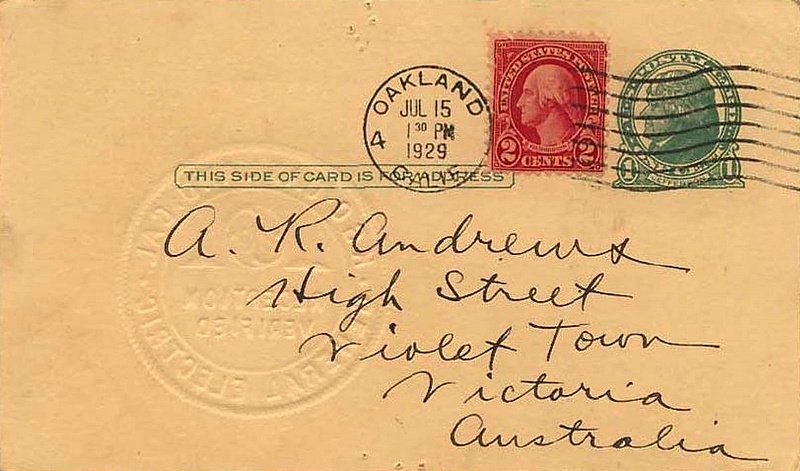 OAKLAND
JUL 15
1 30 PM
1929
4 CALIF.
UNITED STATES POSTAGE
2 CENTS 2
1 1
THIS SIDE OF CARD IS FOR ADDRESS
A. R. Andrews
High Street
Violet Town
Victoria
Australia
VERIFIED
ELECTRIC